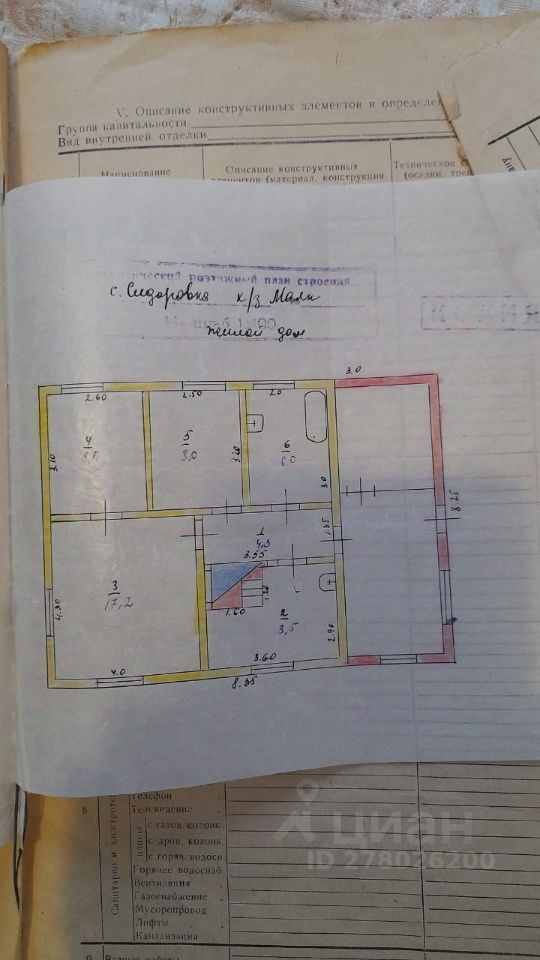 V. Описание конструктивных элементов и определе
Группа капитальности
Вид внутренней отделки
Наименование
Описание конструктивных
элементов (материал, конструкция
Техническое с
(осадки, трещ
поэтажный план строения
с. Сидоровка к/з Маяк
жилой дом
КОПИЯ
3.0
2.60
2.50
2.0
4
5
8,0
6
6,0
3.10
3.20
3.0
1
4,9
1.35
8.25
3.55
3
17,2
4.30
1.60
2
8,5
2.90
4.0
3.60
8.35
Телефон
8
Телевидение
Санитарно и электроте
ванны
с газов. колонк.
с дров. колонк.
с горяч. водосн.
Горячее водоснаб
Вентиляция
Газоснабжение
Мусоропровод
Лифты
Канализация
9
циан
ID 278026200